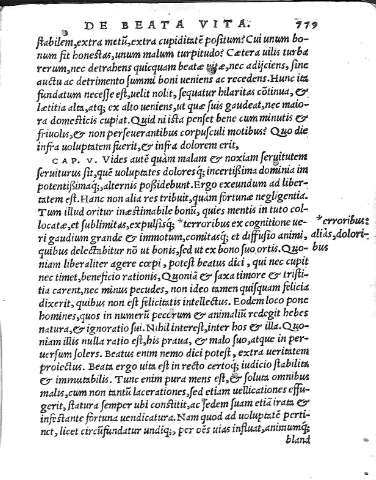 DE BEATA VITA. 779
stabilem, extra metũ, extra cupiditatẽ positum? Cui unum bo-
num fit honestas, unum malum turpitudo? Cætera uilis turba
rerum, nec detrahens quicquam beatæ uitæ, nec adijciens, sine
auctu ac detrimento summi boni ueniens ac recedens. Hunc ita
fundatum necesse est, uelit nolit, sequatur hilaritas cõtinua, &
lætitia alta, atq; ex alto ueniens, ut quæ suis gaudeat, nec maio-
ra domesticis cupiat. Quid ni ista penset bene cum minutis &
friuolis, & non perseuerantibus corpusculi motibus? Quo die
infra uoluptatem fuerit, & infra dolorem erit,
CAP. V. Vides autẽ quàm malam & noxiam seruitutem
seruiturus sit, quẽ uoluptates doloresq; incertißima dominia im
potentißimaq; alternis poßidebunt. Ergo exeundum ad liber-
tatem est. Hanc non alia res tribuit, quàm fortunæ negligentia.
Tum illud oritur inæstimabile bonũ, quies mentis in tuto col-
locatæ, et sublimitas, expulsisq; *terroribus ex cognitione ue-
ri gaudium grande & immotum, comitasq; et diffusio animi,
quibus delectabitur nõ ut bonis, sed ut ex bono suo ortis. Quo-
niam liberaliter agere cœpi, potest beatus dici, qui nec cupit
nec timet, beneficio rationis, Quoniã & saxa timore & tristi-
tia carent, nec minus pecudes, non ideo tamen quisquam felicia
dixerit, quibus non est felicitatis intellectus. Eodem loco pone
homines, quos in numerũ pecorum & animaliũ redegit hebes
natura, & ignoratio sui. Nihil interest, inter hos & illa. Quo-
niam illis nulla ratio est, his praua, & malo suo, atque in per-
uersum solers. Beatus enim nemo dici potest, extra ueritatem
proiectus. Beata ergo uita est in recto certoq; iudicio stabilita
& immutabilis. Tunc enim pura mens est, & soluta omnibus
malis, cum non tantũ lacerationes, sed etiam uellicationes effu-
gerit, statura semper ubi constitit, ac sedem suam etiã irata &
infestante fortuna uendicatura. Nam quod ad uoluptatẽ perti-
net, licet circũfundatur undiq;, per oẽs uias influat, animumq;
bland
*erroribus:
aliâs, dolori-
bus